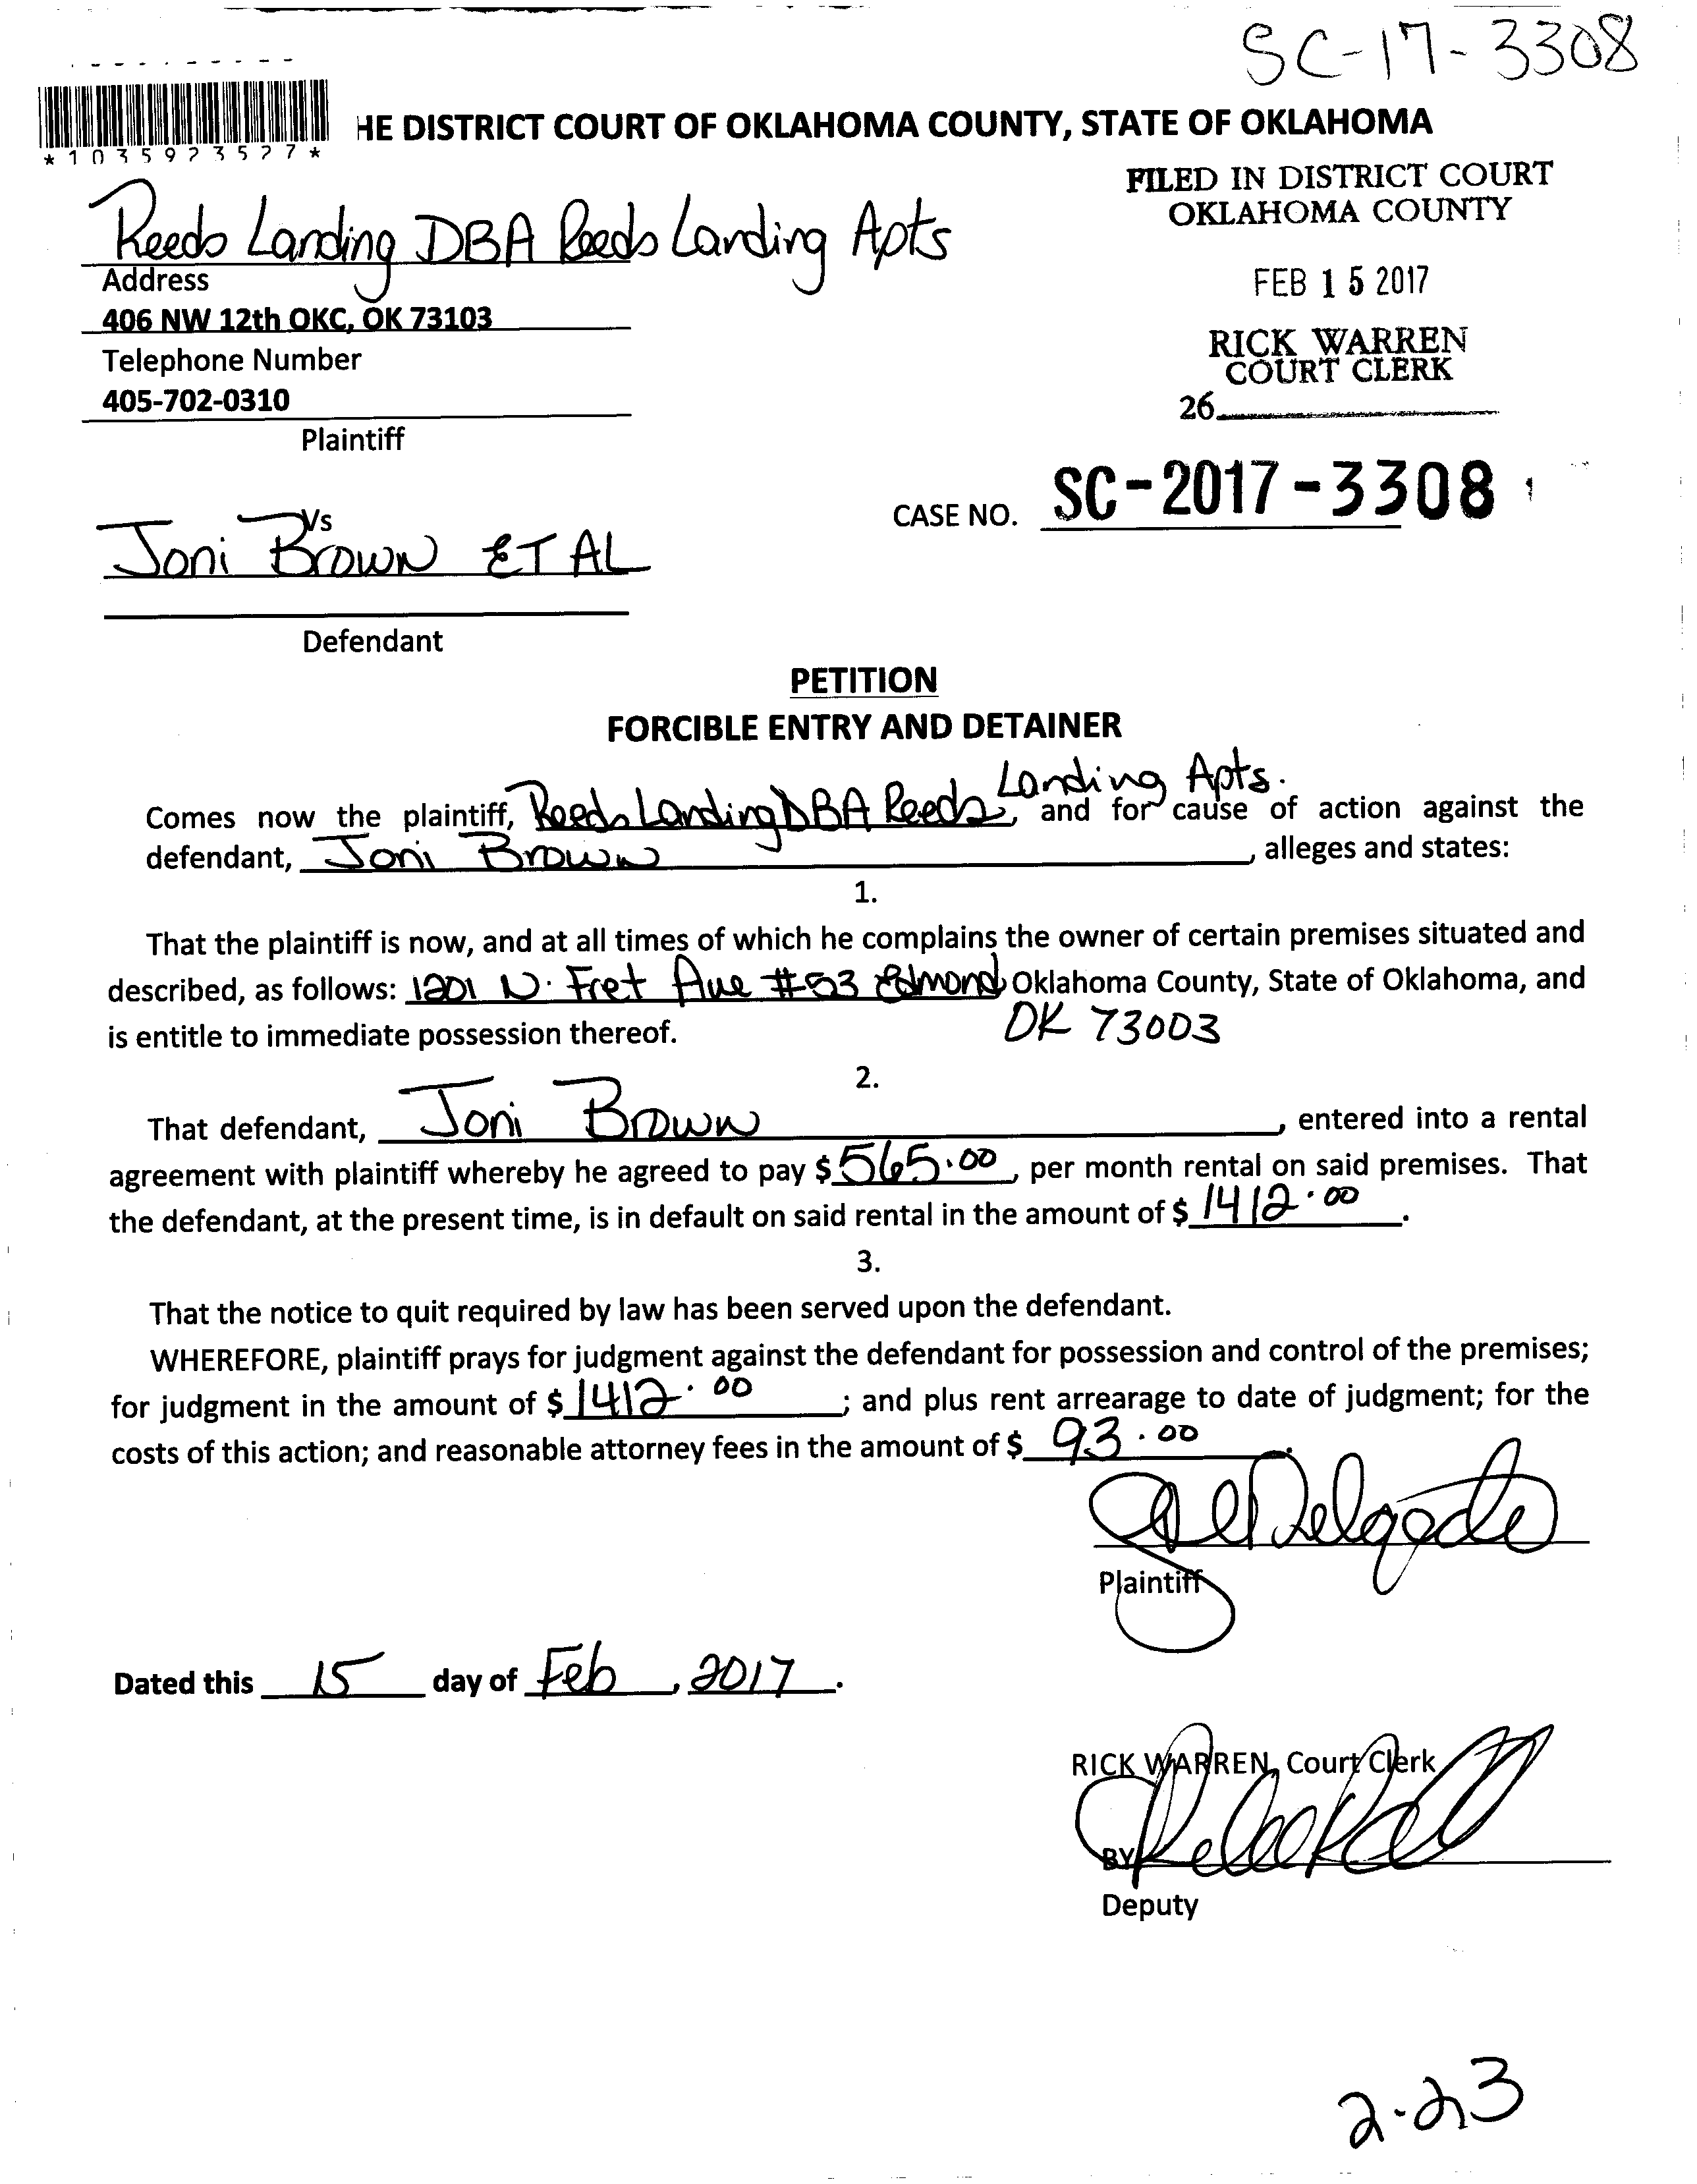 SC-17-3308
HE DISTRICT COURT OF OKLAHOMA COUNTY, STATE OF OKLAHOMA
*1035923527*
FILED IN DISTRICT COURT
OKLAHOMA COUNTY
Reeds Landing DBA Reeds Landing Apts
Address
FEB 15 2017
406 NW 12th OKC, OK 73103
RICK WARREN
COURT CLERK
Telephone Number
405-702-0310
26
Plaintiff
CASE NO. SC-2017-3308
Vs
Joni Brown ET AL
Defendant
PETITION
FORCIBLE ENTRY AND DETAINER
Comes now the plaintiff, Reeds Landing DBA Reeds Landing Apts., and for cause of action against the
defendant, Joni Brown, alleges and states:
1.
That the plaintiff is now, and at all times of which he complains the owner of certain premises situated and
described, as follows: 1201 N. Fret Ave #53 Edmond Oklahoma County, State of Oklahoma, and
OK 73003
is entitle to immediate possession thereof.
2.
That defendant, Joni Brown, entered into a rental
agreement with plaintiff whereby he agreed to pay $ 565.00, per month rental on said premises. That
the defendant, at the present time, is in default on said rental in the amount of $ 1412.00.
3.
That the notice to quit required by law has been served upon the defendant.
WHEREFORE, plaintiff prays for judgment against the defendant for possession and control of the premises;
for judgment in the amount of $ 1412.00; and plus rent arrearage to date of judgment; for the
costs of this action; and reasonable attorney fees in the amount of $ 93.00.
Delgado
Plaintiff
Dated this 15 day of Feb, 2017.
RICK WARREN, Court Clerk
BY
Deputy
2-23